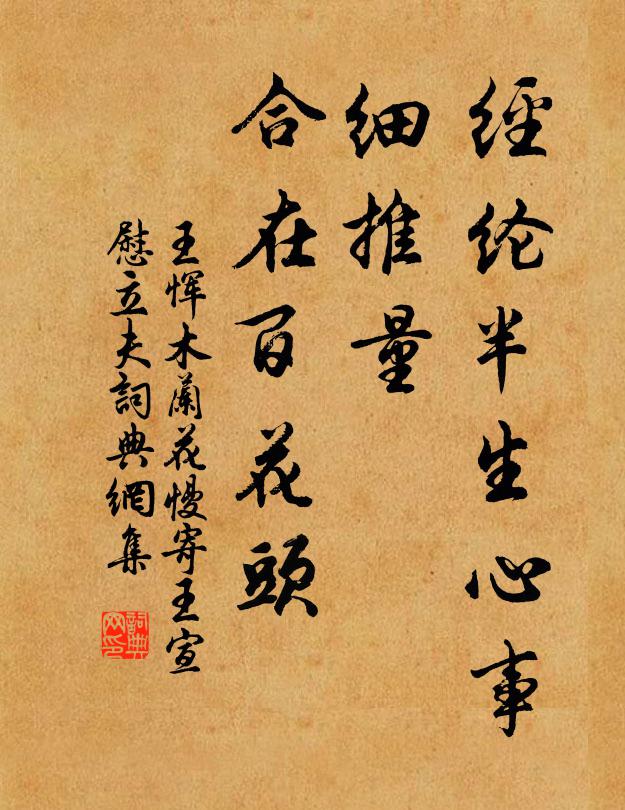 經纶半生心事
细推量
合在百花頭
王恽木蘭花慢寄王宣
慰立夫詞典網集
詞典
网印